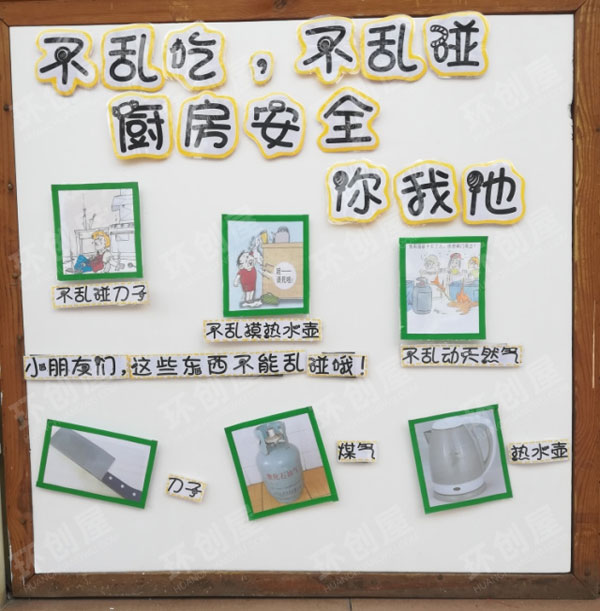 不乱吃，不乱碰
厨房安全
你我他
不乱碰刀子
不乱摸热水壶
不乱动天然气
小朋友们，这些东西不能乱碰哦！
刀子
煤气
热水壶
环创屋